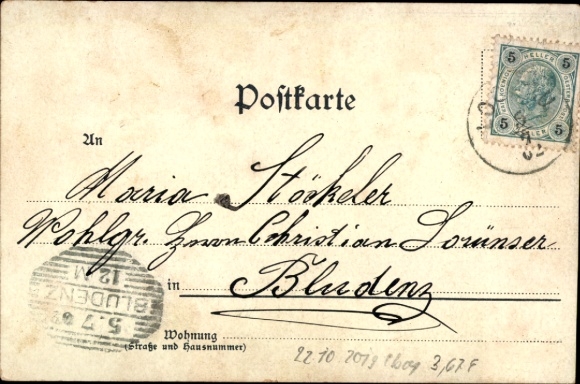 5 HELLER 5
5 HELLER 5
Postkarte
An
Maria Stöckeler
Wohlgr. Christian Lorünser
in Bludenz
BLUDENZ
5.7
12 M
Wohnung
(Straße und Hausnummer)
22.10 2019 3,67 F